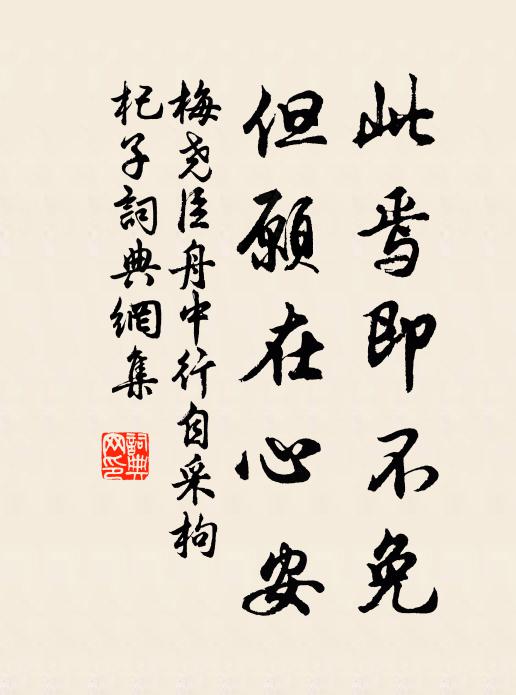 此焉即不免
但愿在心安
梅尧臣舟中行自采枸
杞子詞典網集
詞典
网印